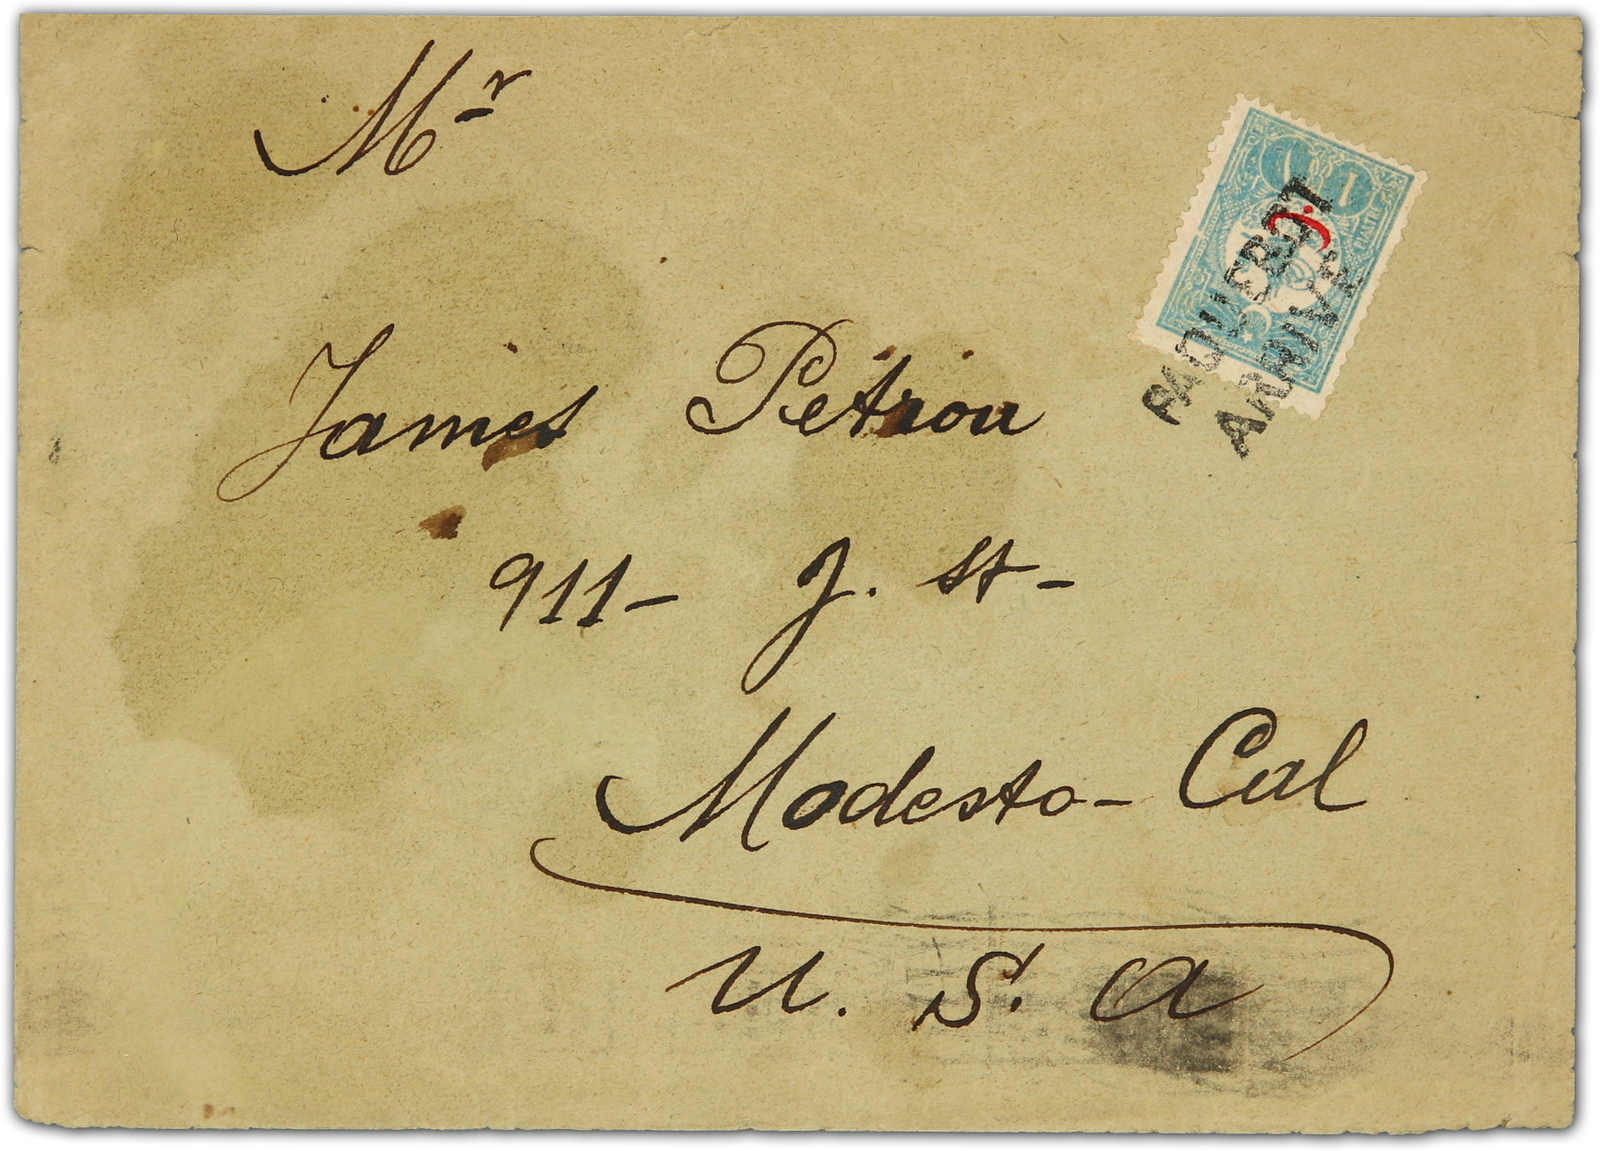 Mr
James Petrou
911- J. St-
Modesto- Cal
U. S. A
PAQUEBOT
ARRIVÉ
1